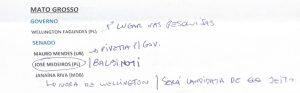 MATO GROSSO
GOVERNO
WELLINGTON FAGUNDES (PL) 1º LUGAR NAS PESQUISAS
SENADO
MAURO MENDES (UB) PIVETTA P/ GOV.
JOSÉ MEDEIROS (PL) BALBINOTI
JANAÍNA RIVA (MDB)
NORA DE WELLINGTON / SERÁ CANDIDATA DE QQ JEITO